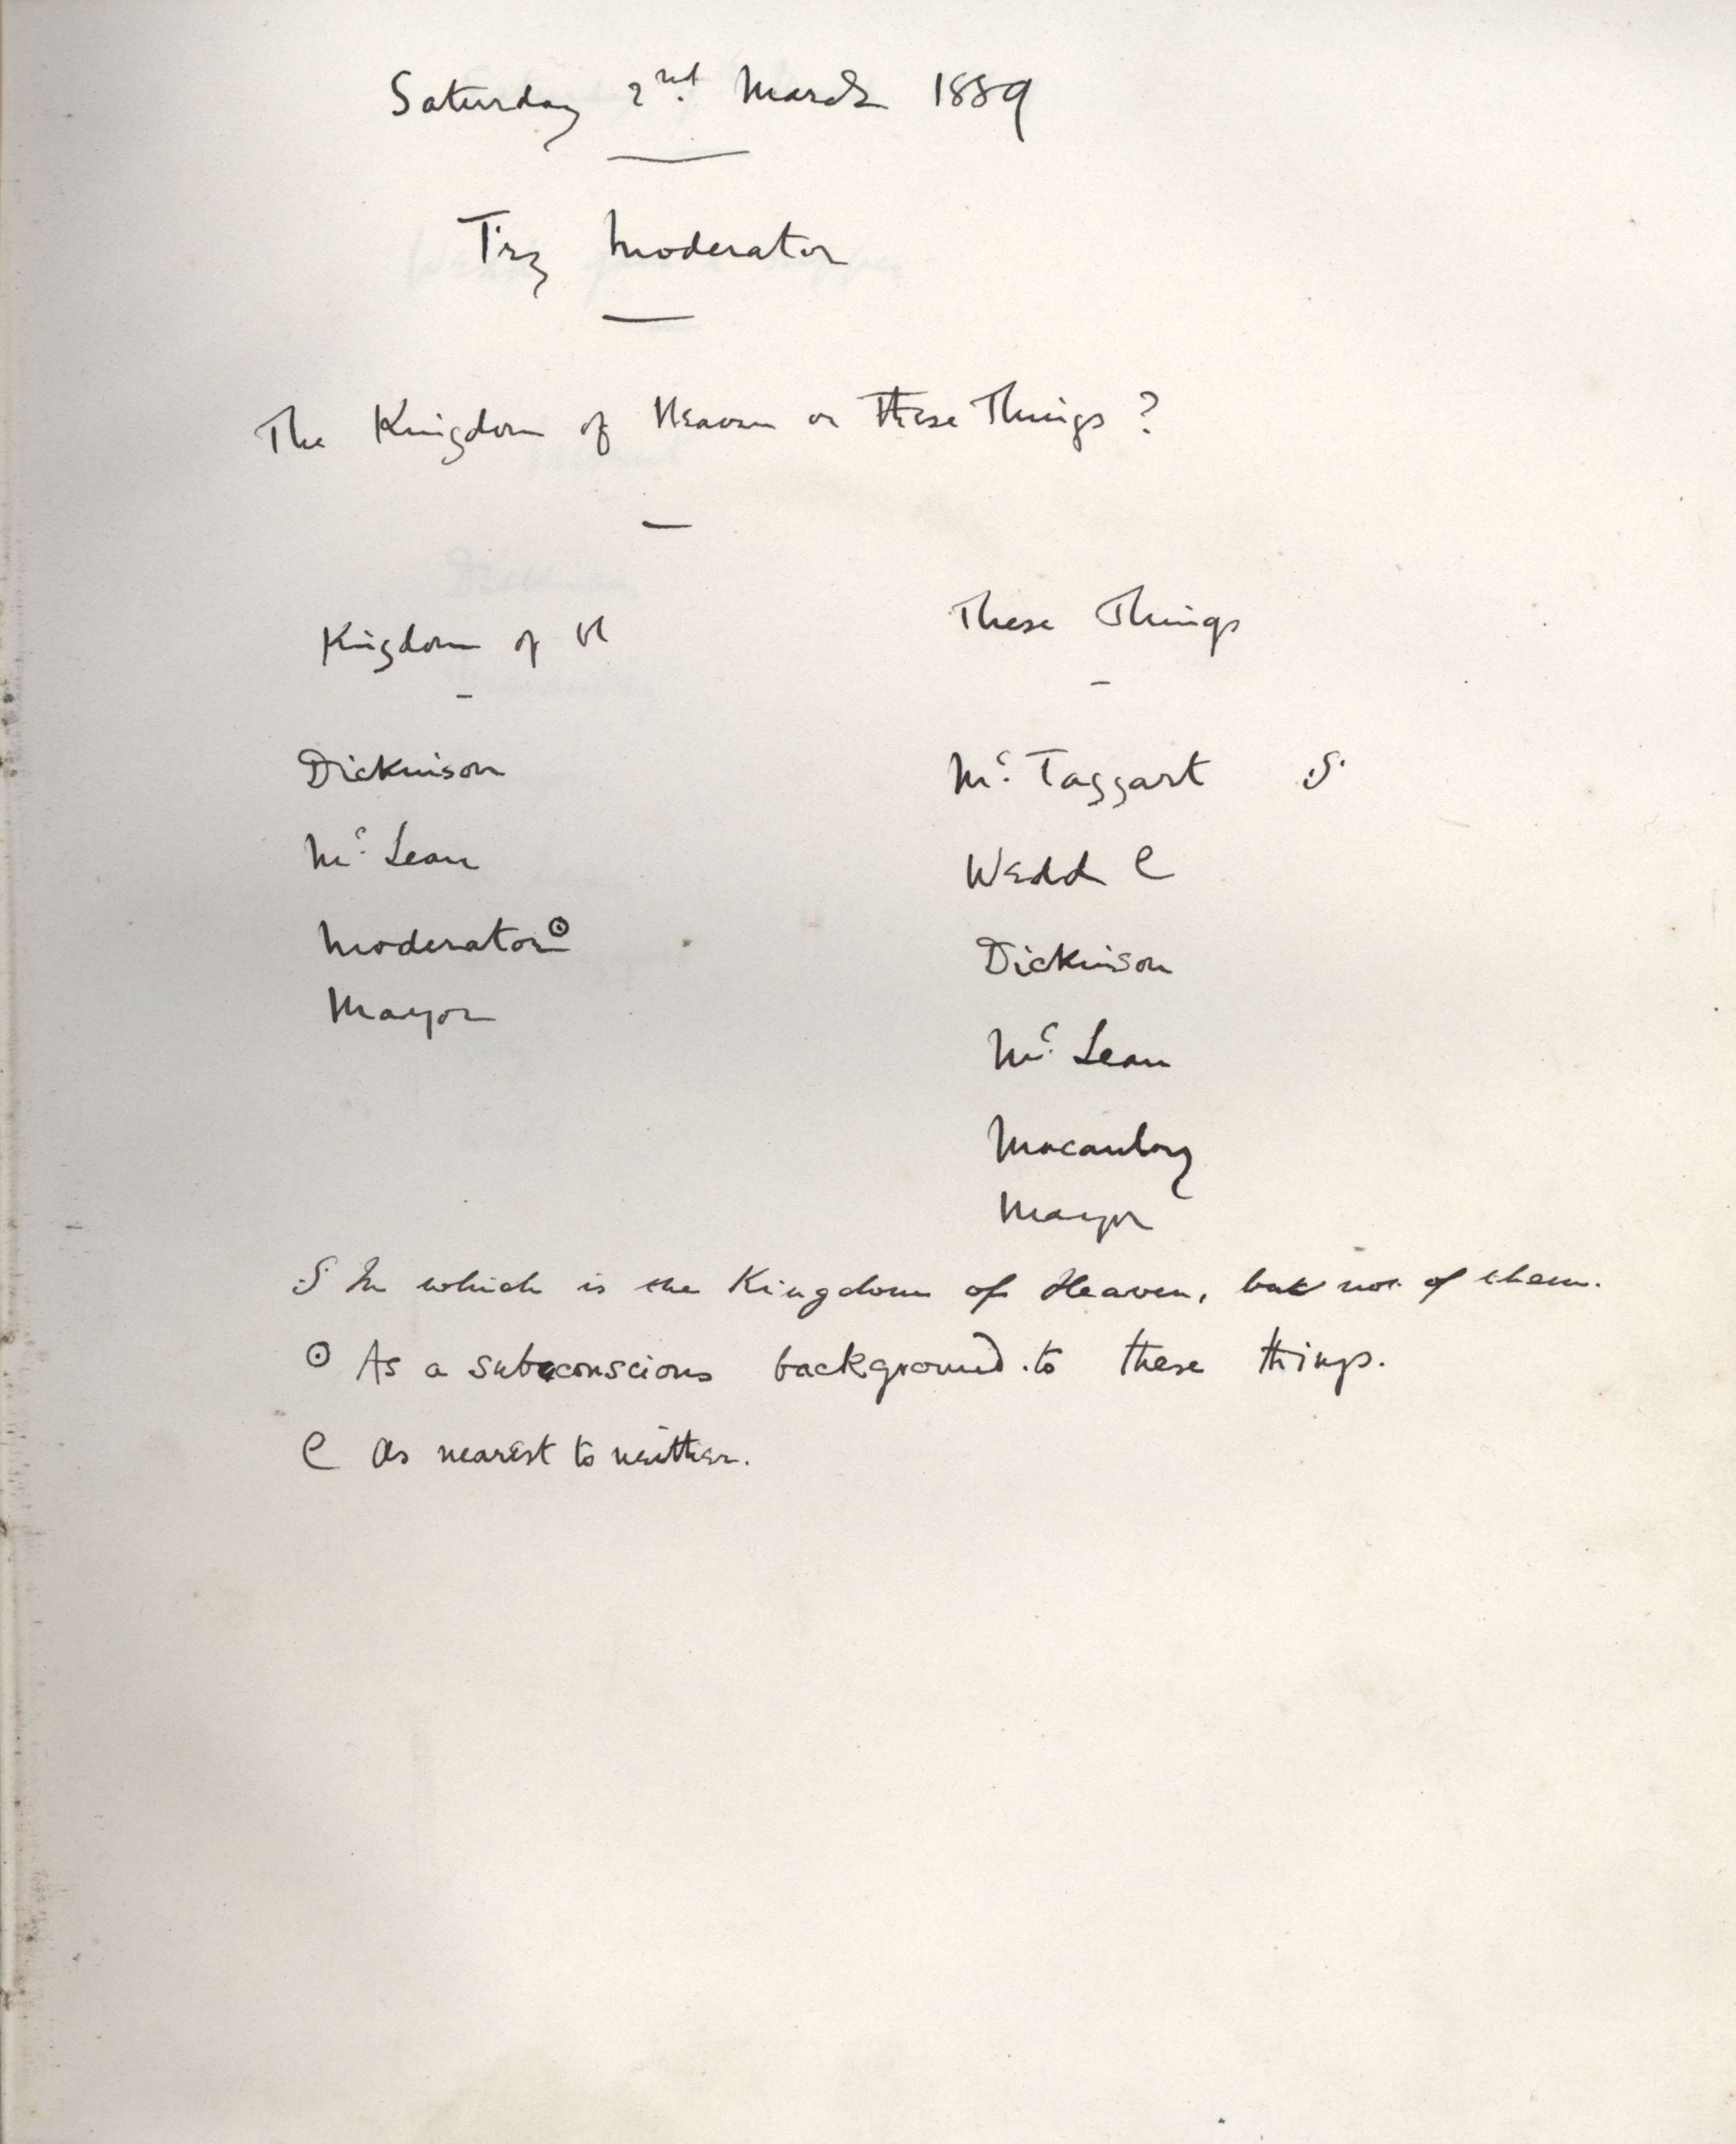 Saturday 2nd. March 1889
Fry Moderator
The Kingdom of Heaven or These Things?
Kigdom of H
These Things
Dickinson
Mc. Taggart S
Mc. Lean
Wedd e
Moderator ⊙
Dickinson
Mayor
Mc. Lean
Macaulay
Mayor
S In which is the Kingdom of Heaven, but not of them.
⊙ As a subconscious background to these things.
e As nearest to neither.